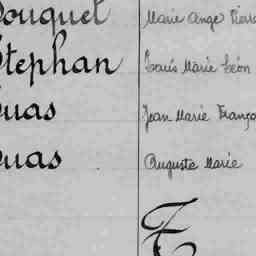 Bouquet Marie Ange Pierre
Stephan Louis Marie Léon
Suas Jean Marie Franço
Suas Auguste Marie
T